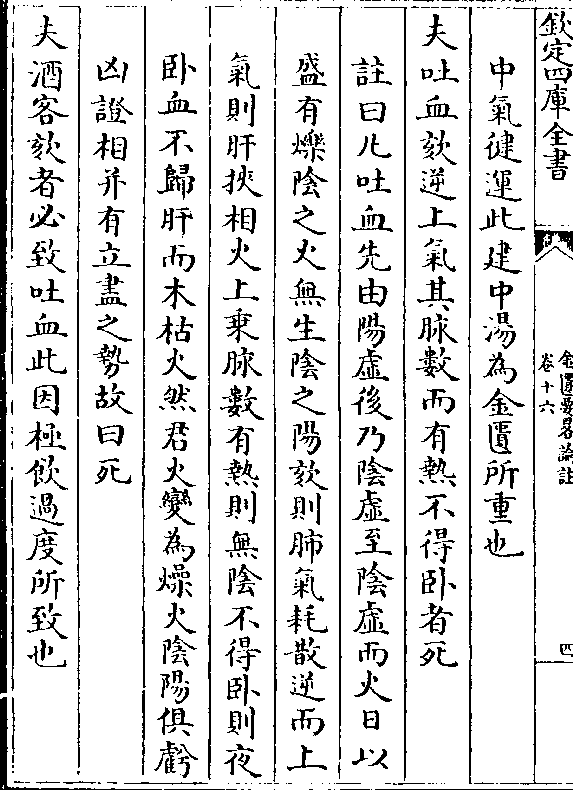 欽定四庫全書
金匱要畧論註
卷十六
四
中氣健運此建中湯為金匱所重也
夫吐血欬逆上氣其脉數而有熱不得卧者死
註曰凡吐血先由陽虛後乃陰虛至陰虛而火日以
盛有爍陰之火無生陰之陽欬則肺氣耗散逆而上
氣則肝挾相火上乗脉數有熱則無陰不得卧則夜
卧血不歸肝而木枯火然君火變為燥火陰陽俱虧
凶證相并有立盡之勢故曰死
夫酒客欬者必致吐血此因極飲過度所致也